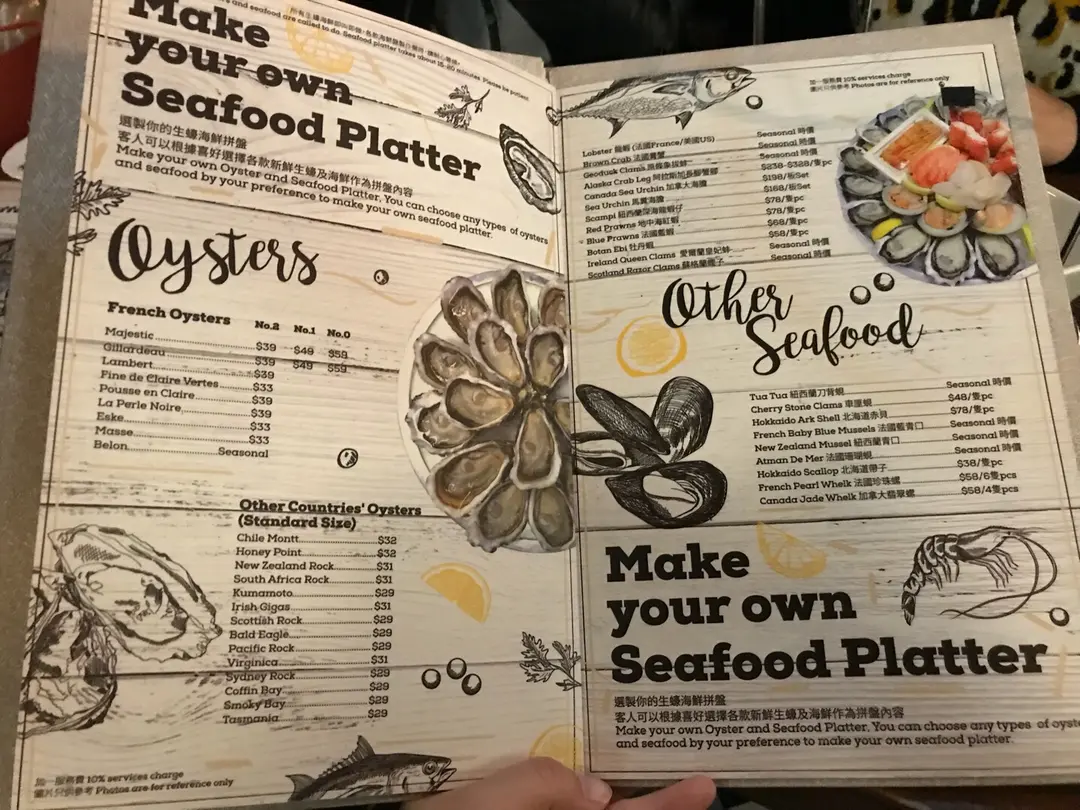 and seafood are called to do. Seafood platter takes about 15-20 minutes. Please be patient
Make
your own
Seafood Platter
選製你的生蠔海鮮拼盤
客人可以根據喜好選擇各款新鮮生蠔及海鮮作為拼盤內容
Make your own Oyster and Seafood Platter, You can choose any types of oysters
and seafood by your preference to make your own seafood platter.
Oysters
French Oysters No.2 No.1 No.0
Majestic $39 $49 $59
Gillardeau $39 $49 $59
Lambert $39
Fine de Claire Vertes $33
Pousse en Claire $39
La Perle Noire $39
Eske $33
Masse $33
Belon Seasonal
Other Countries' Oysters
(Standard Size)
Chile Montt $32
Honey Point $32
New Zealand Rock $31
South Africa Rock $31
Kumamoto $29
Irish Gigas $31
Scottish Rock $29
Bald Eagle $29
Pacific Rock $29
Virginica $31
Sydney Rock $29
Coffin Bay $29
Smoky Bay $29
Tasmania $29
加一服務費 10% services charge
圖片只供參考 Photos are for reference only
加一服務費 10% services charge
圖片只供參考 Photos are for reference only
Lobster 龍蝦 (法國France/美國US) Seasonal 時價
Brown Crab 法國膏蟹 Seasonal 時價
Geoduck Clams Seasonal 時價
Alaska Crab Leg 阿拉斯加長腳蟹腳 $238-$328/隻pc
Canada Sea Urchin 加拿大海膽 $198/板Set
Sea Urchin 馬糞海膽 $168/板Set
Scampi 紐西蘭深海龍蝦仔 $78/隻pc
Red Prawns 地中海紅蝦 $78/隻pc
Blue Prawns 法國藍蝦 $68/隻pc
Botan Ebi 牡丹蝦 $58/隻pc
Ireland Queen Clams 愛爾蘭皇妃蚌 Seasonal 時價
Scotland Razor Clams 蘇格蘭蟶子 Seasonal 時價
Other
Seafood
Tua Tua 紐西蘭刀背蜆 Seasonal 時價
Cherry Stone Clams 車厘蜆 $48/隻pc
Hokkaido Ark Shell 北海道赤貝 $78/隻pc
French Baby Blue Mussels 法國藍青口 Seasonal 時價
New Zealand Mussel 紐西蘭青口 Seasonal 時價
Atman De Mer 法國珊瑚蜆 Seasonal 時價
Hokkaido Scallop 北海道帶子 $38/隻pc
French Pearl Whelk 法國珍珠螺 $58/6隻pcs
Canada Jade Whelk 加拿大翡翠螺 $58/4隻pcs
Make
your own
Seafood Platter
選製你的生蠔海鮮拼盤
客人可以根據喜好選擇各款新鮮生蠔及海鮮作為拼盤內容
Make your own Oyster and Seafood Platter, You can choose any types of oyste
and seafood by your preference to make your own seafood platter.